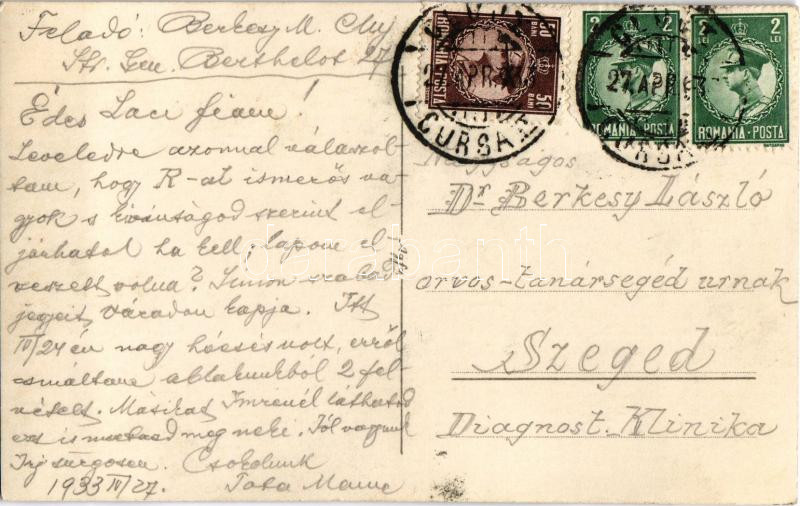 Feladó: Berkesy M. Cluj
Str. Gen. Berthelot 27
Édes Laci fiam!
Leveledre azonnal válaszol-
tam, hogy R-at ismerős va-
gyok s kívánságod szerint el-
járhatok ha kell, lapom el
veszett volna? Simon szabad
jegyeit Váradon kapja. Itt
IV/24 én nagy hóesés volt, erről
csináltam ablakunkból 2 fel-
vételt. Másikat Imrénél láthatod
ezt is mutasd meg neki. Jól vagyunk
Írj sürgősen. Csókolunk
1933 IV/27. Tata Mama
50 BANI
ROMANIA-POSTA
50 BANI
2 LEI
ROMANIA-POSTA
2 LEI
ROMANIA-POSTA
27 APR.
CURSA
27 APR
Nagyságos
Dr Berkesy László
orvos-tanársegéd urnak
Szeged
Diagnost. Klinika
darabanth